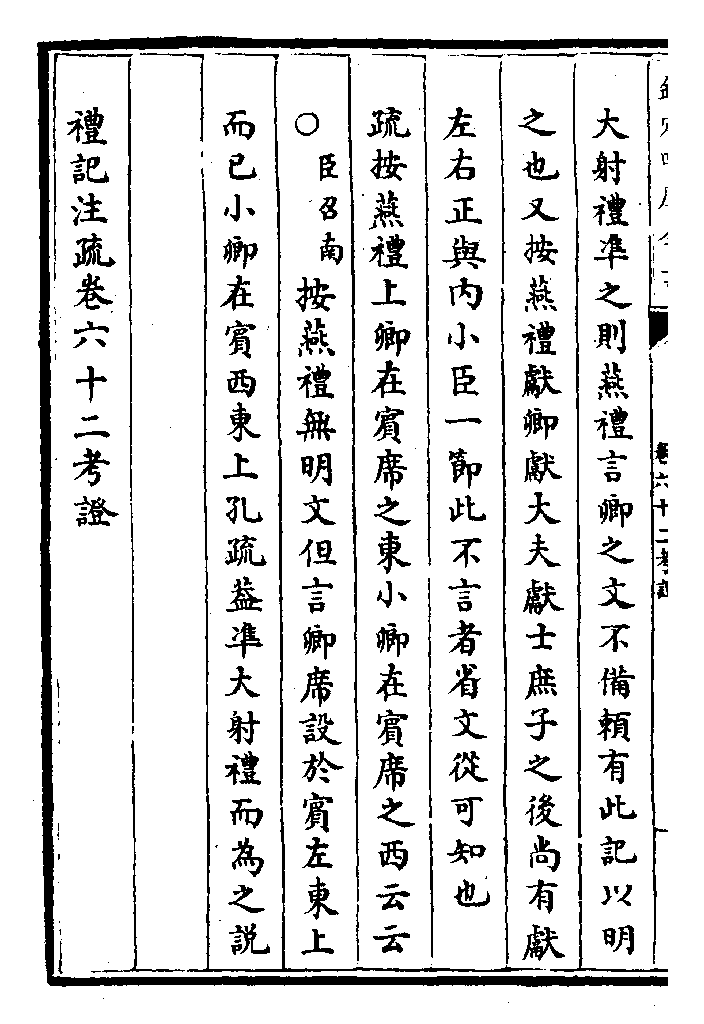 大射禮凖之則燕禮言卿之文不備頼有此記以明
之也又按燕禮獻卿獻大夫獻士庶子之後尚有獻
左右正與内小臣一節此不言者省文從可知也
疏按燕禮上卿在賓席之東小卿在賓席之西云云
○臣召南按燕禮無明文但言卿席設於賓左東上
而已小卿在賓西東上孔疏葢凖大射禮而為之説
禮記注疏卷六十二考證